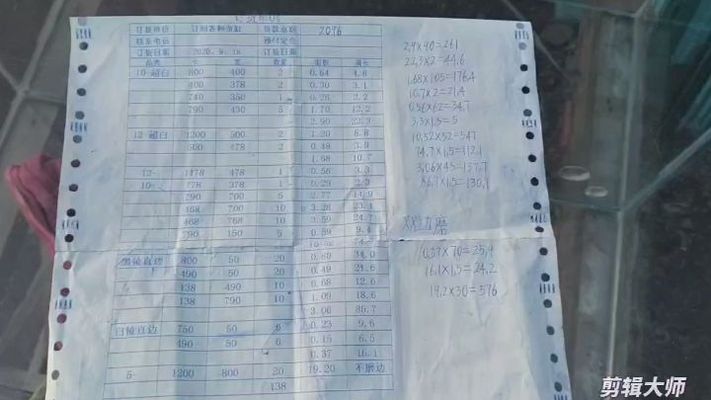 订做各种鱼缸 2096
订货日期 2020.9.18 订货日期
品名 长 宽 数量 面积 周长
10-超白 800 400 2 0.64 4.8
400 378 2 0.30 3.1
740 350 1 0.26 2.2
790 430 5 1.70 12.2
2.90 22.3
12-超白 1200 500 2 1.20 6.8
500 478 2 0.48 3.9
1.68 10.7
12- 1178 478 1 0.56 3.3
10- 778 378 1 0.29 2.3
790 700 5 2.77 14.9
468 700 10 3.28 23.4
468 768 10 3.59 24.7
790 150 5 0.59 9.4
黑镜直边 800 50 20 0.80 34.0
490 50 20 0.49 21.6
138 490 10 0.68 12.6
138 790 10 1.09 18.6
3.06 86.7
白镜直边 750 50 6 0.23 9.6
490 50 6 0.15 6.5
0.37 16.1
5 1200 800 20 19.20 不磨边
138
2.9×90=261
22.3×2=44.6
1.68×105=176.4
10.7×2=21.4
0.56×62=34.7
3.3×1.5=5
10.52×52=547
74.7×1.5=112.1
3.06×45=137.7
86.7×1.5=130.1
0.37×70=25.9
16.1×1.5=24.2
19.2×30=576
剪辑大师